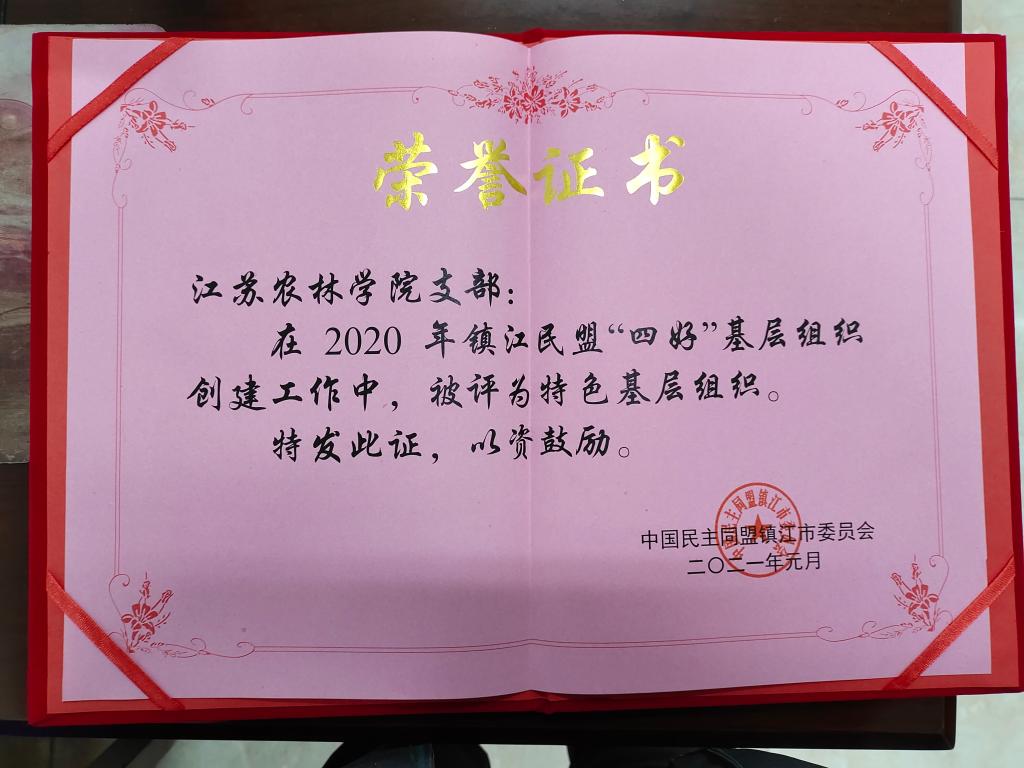 荣誉证书
江苏农林学院支部：
在 2020 年镇江民盟“四好”基层组织
创建工作中，被评为特色基层组织。
特发此证，以资鼓励。
中国民主同盟镇江市委员会
中国民主同盟镇江市委员会
二〇二一年元月